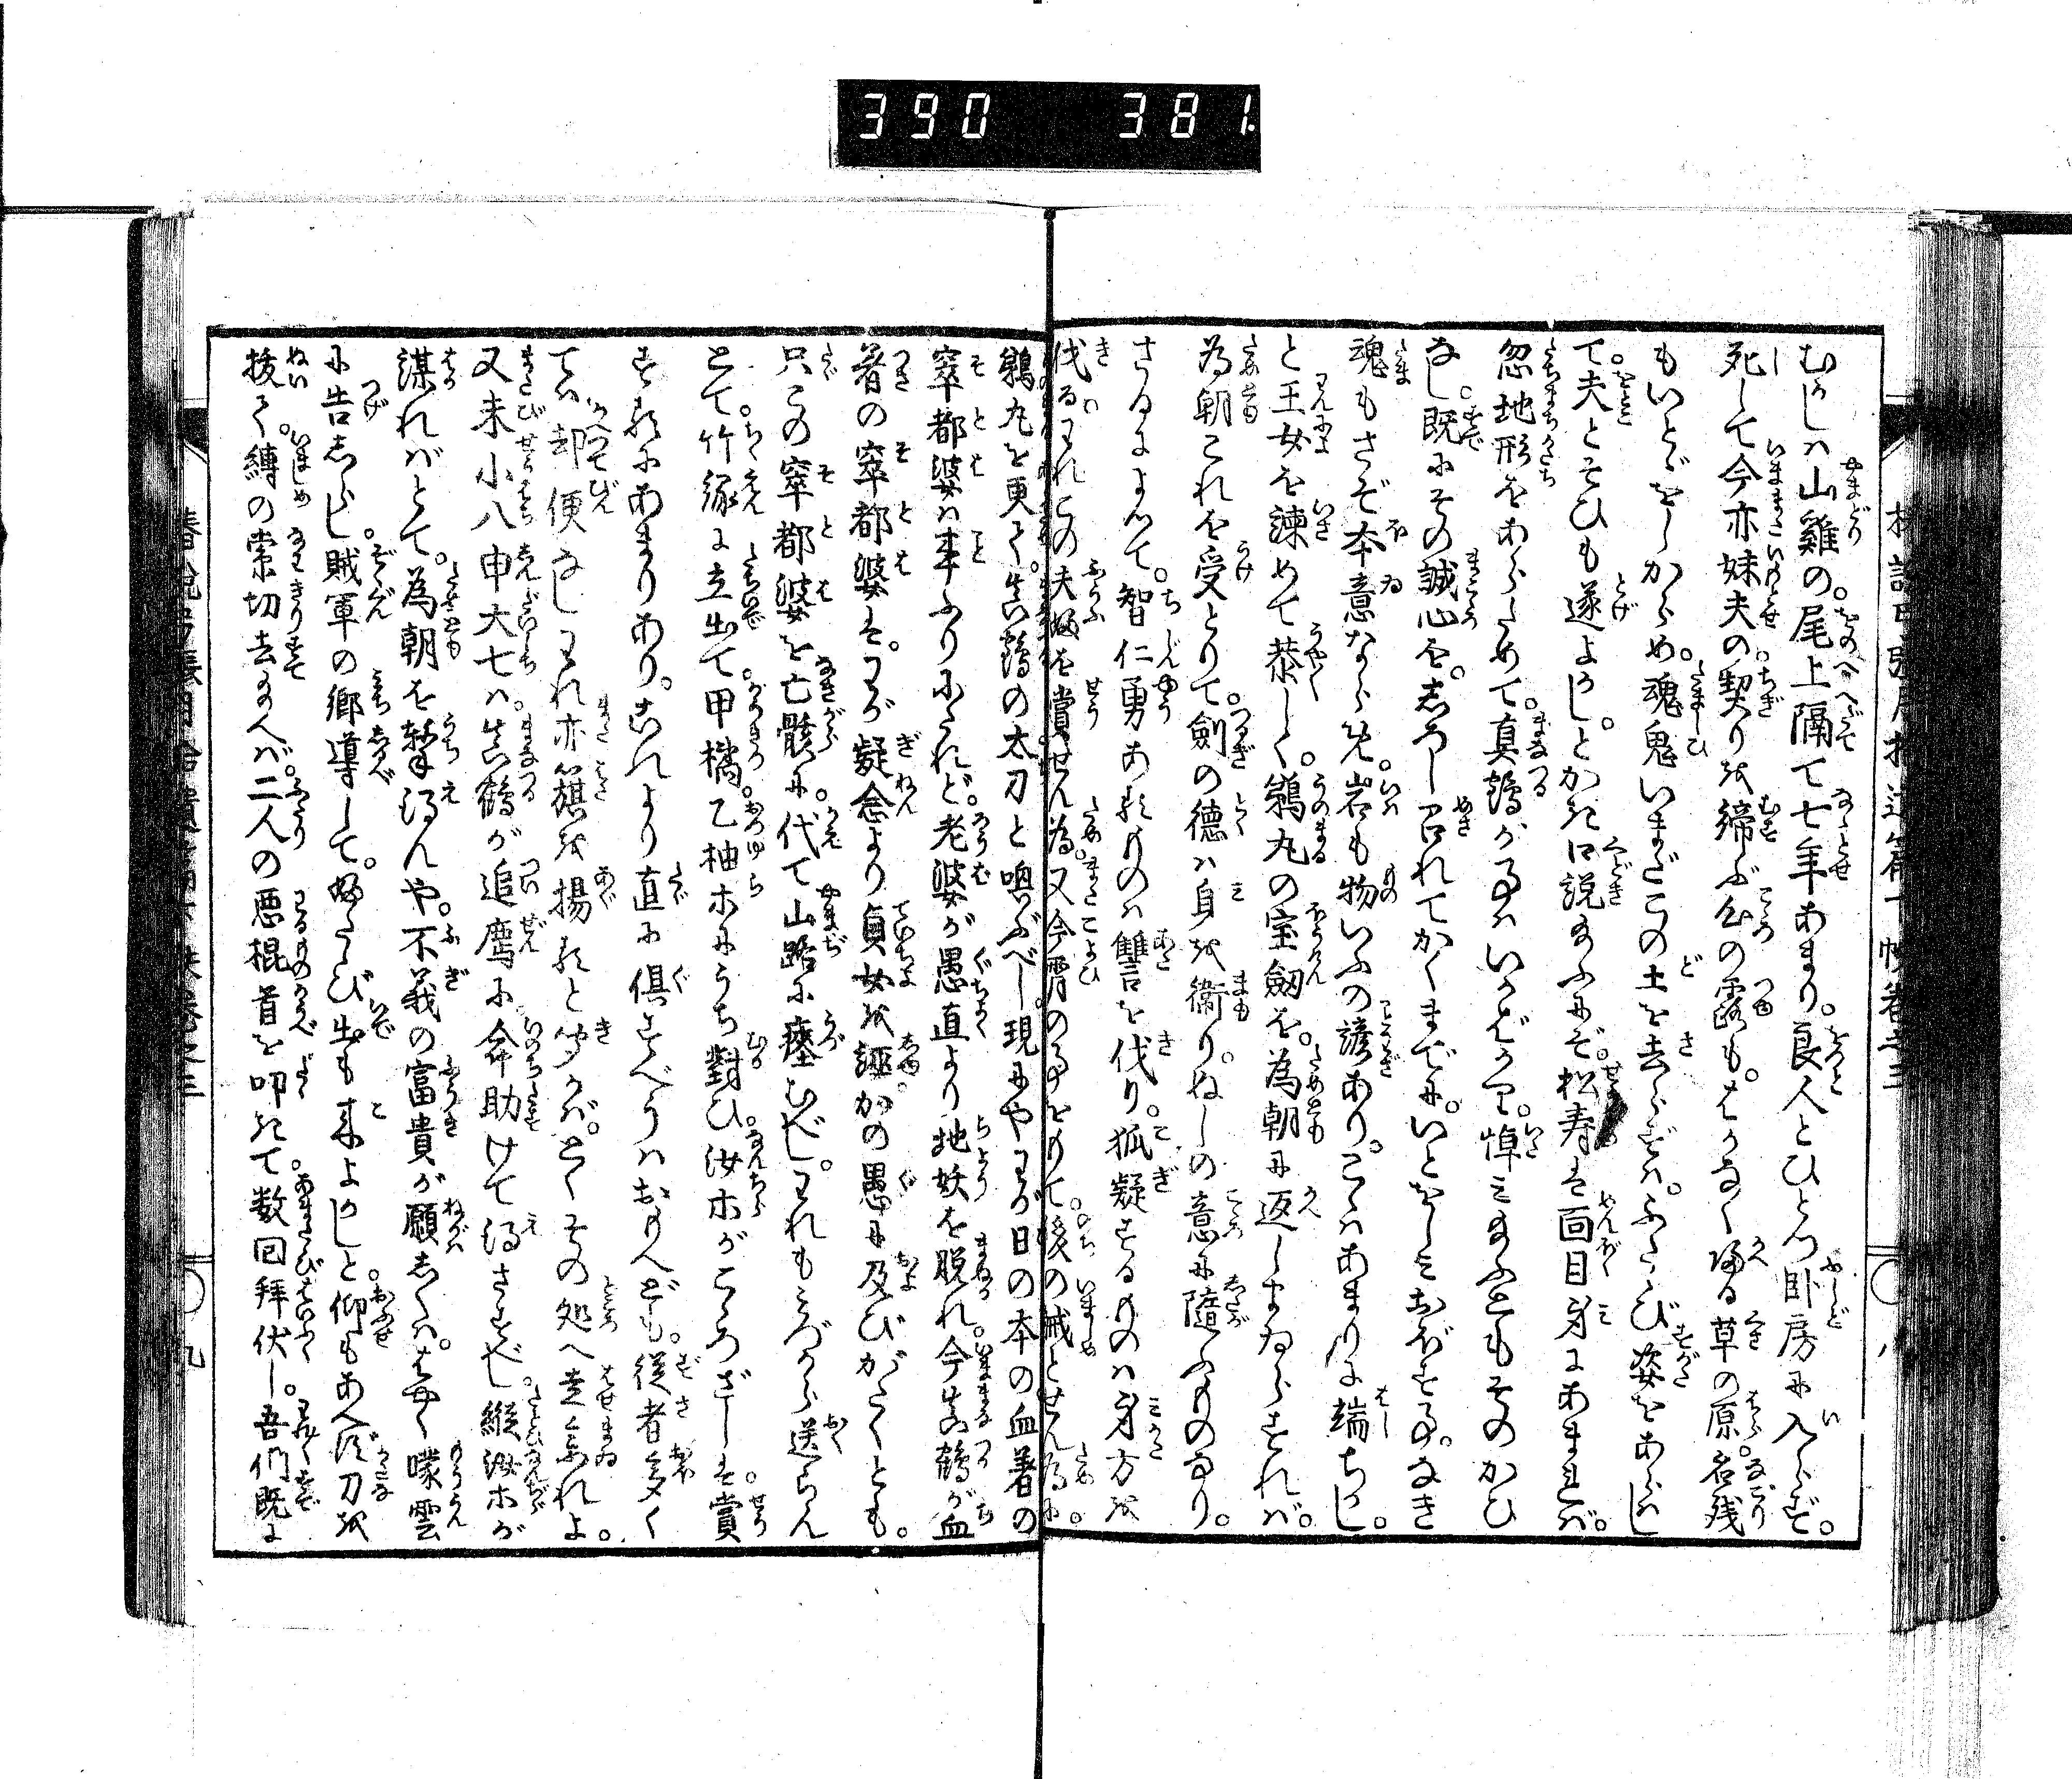 390 381
むかしハ山雞の。尾上隔て七年あまり。良人とひとつ臥房に入らず。
死して今亦妹夫の。契りを締ぶ心の露も。はかなく帰る草の原。名残
もいとゞをしからめ。魂鬼いまだこの土を去らずハ。ふたゝび姿をあらハし
て。夫とそひも遂よかし。とかき口説給ふにぞ。松寿ハ面目身にあまれバ。
忽地形をあらためて。真鶴が事ハいかばかり。悼み給ふともそのかひ
なし。既にその誠心を。しろし召れてかくまでに。いとをしみおぼする事。なき
魂もさぞ本意ならめ。岩も物いふの諺あり。こゝハあまりに端ぢかし。
と王女を諫めて恭しく。鵜丸の宝劔を。為朝に返しまゐらすれバ。
為朝これを受とりて。劍の徳ハ身を衛り。ぬしの意に隨ふものなり。
さるによつて。智仁勇あるものハ讐を伐り。狐疑するものハ身方を
伐る。われこの夫婦を賞せん為。又今宵の事をもて。後の誡とせん為に。
鵜丸を更て。真鶴の太刀と喚ぶべし。現にやわが日の本の血着の
窣都婆ハ事ふりにたれど。老婆が愚直より地妖を脱れ。今真鶴が血
着の窣都婆ハ。わが疑念より貞女を誣。かの愚に及びがたくとも。
只この窣都婆を亡骸に。代て山路に瘞むべし。われもみづから送らん
とて。竹縁に立出て。甲橘。乙柚ホにうち對ひ。汝ホがこゝろざしハ。賞
するにあまりあり。これより直に倶すべうハおもへども。従者多く
てハ却便なし。われ亦籏を揚ると聞かバ。とくその処へ走参れよ。
又末小八申大七ハ。真鶴が追薦に命助けて得さすべし。縦汝ホが
謀れバとて。為朝を撃得んや。不義の富貴が願しくハ。はやく曚雲
に告しらし。賊軍の郷導して。ふたゝび出も来よかしと。仰もあへず刀を
抜て。縛の索切去給へバ。二人の悪棍首を叩きて。数回拜伏し。吾們既に